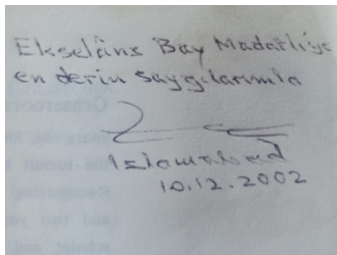 Ekselâns Bay Madatli'ye
en derin saygılarımla
Islamabad
10.12.2002